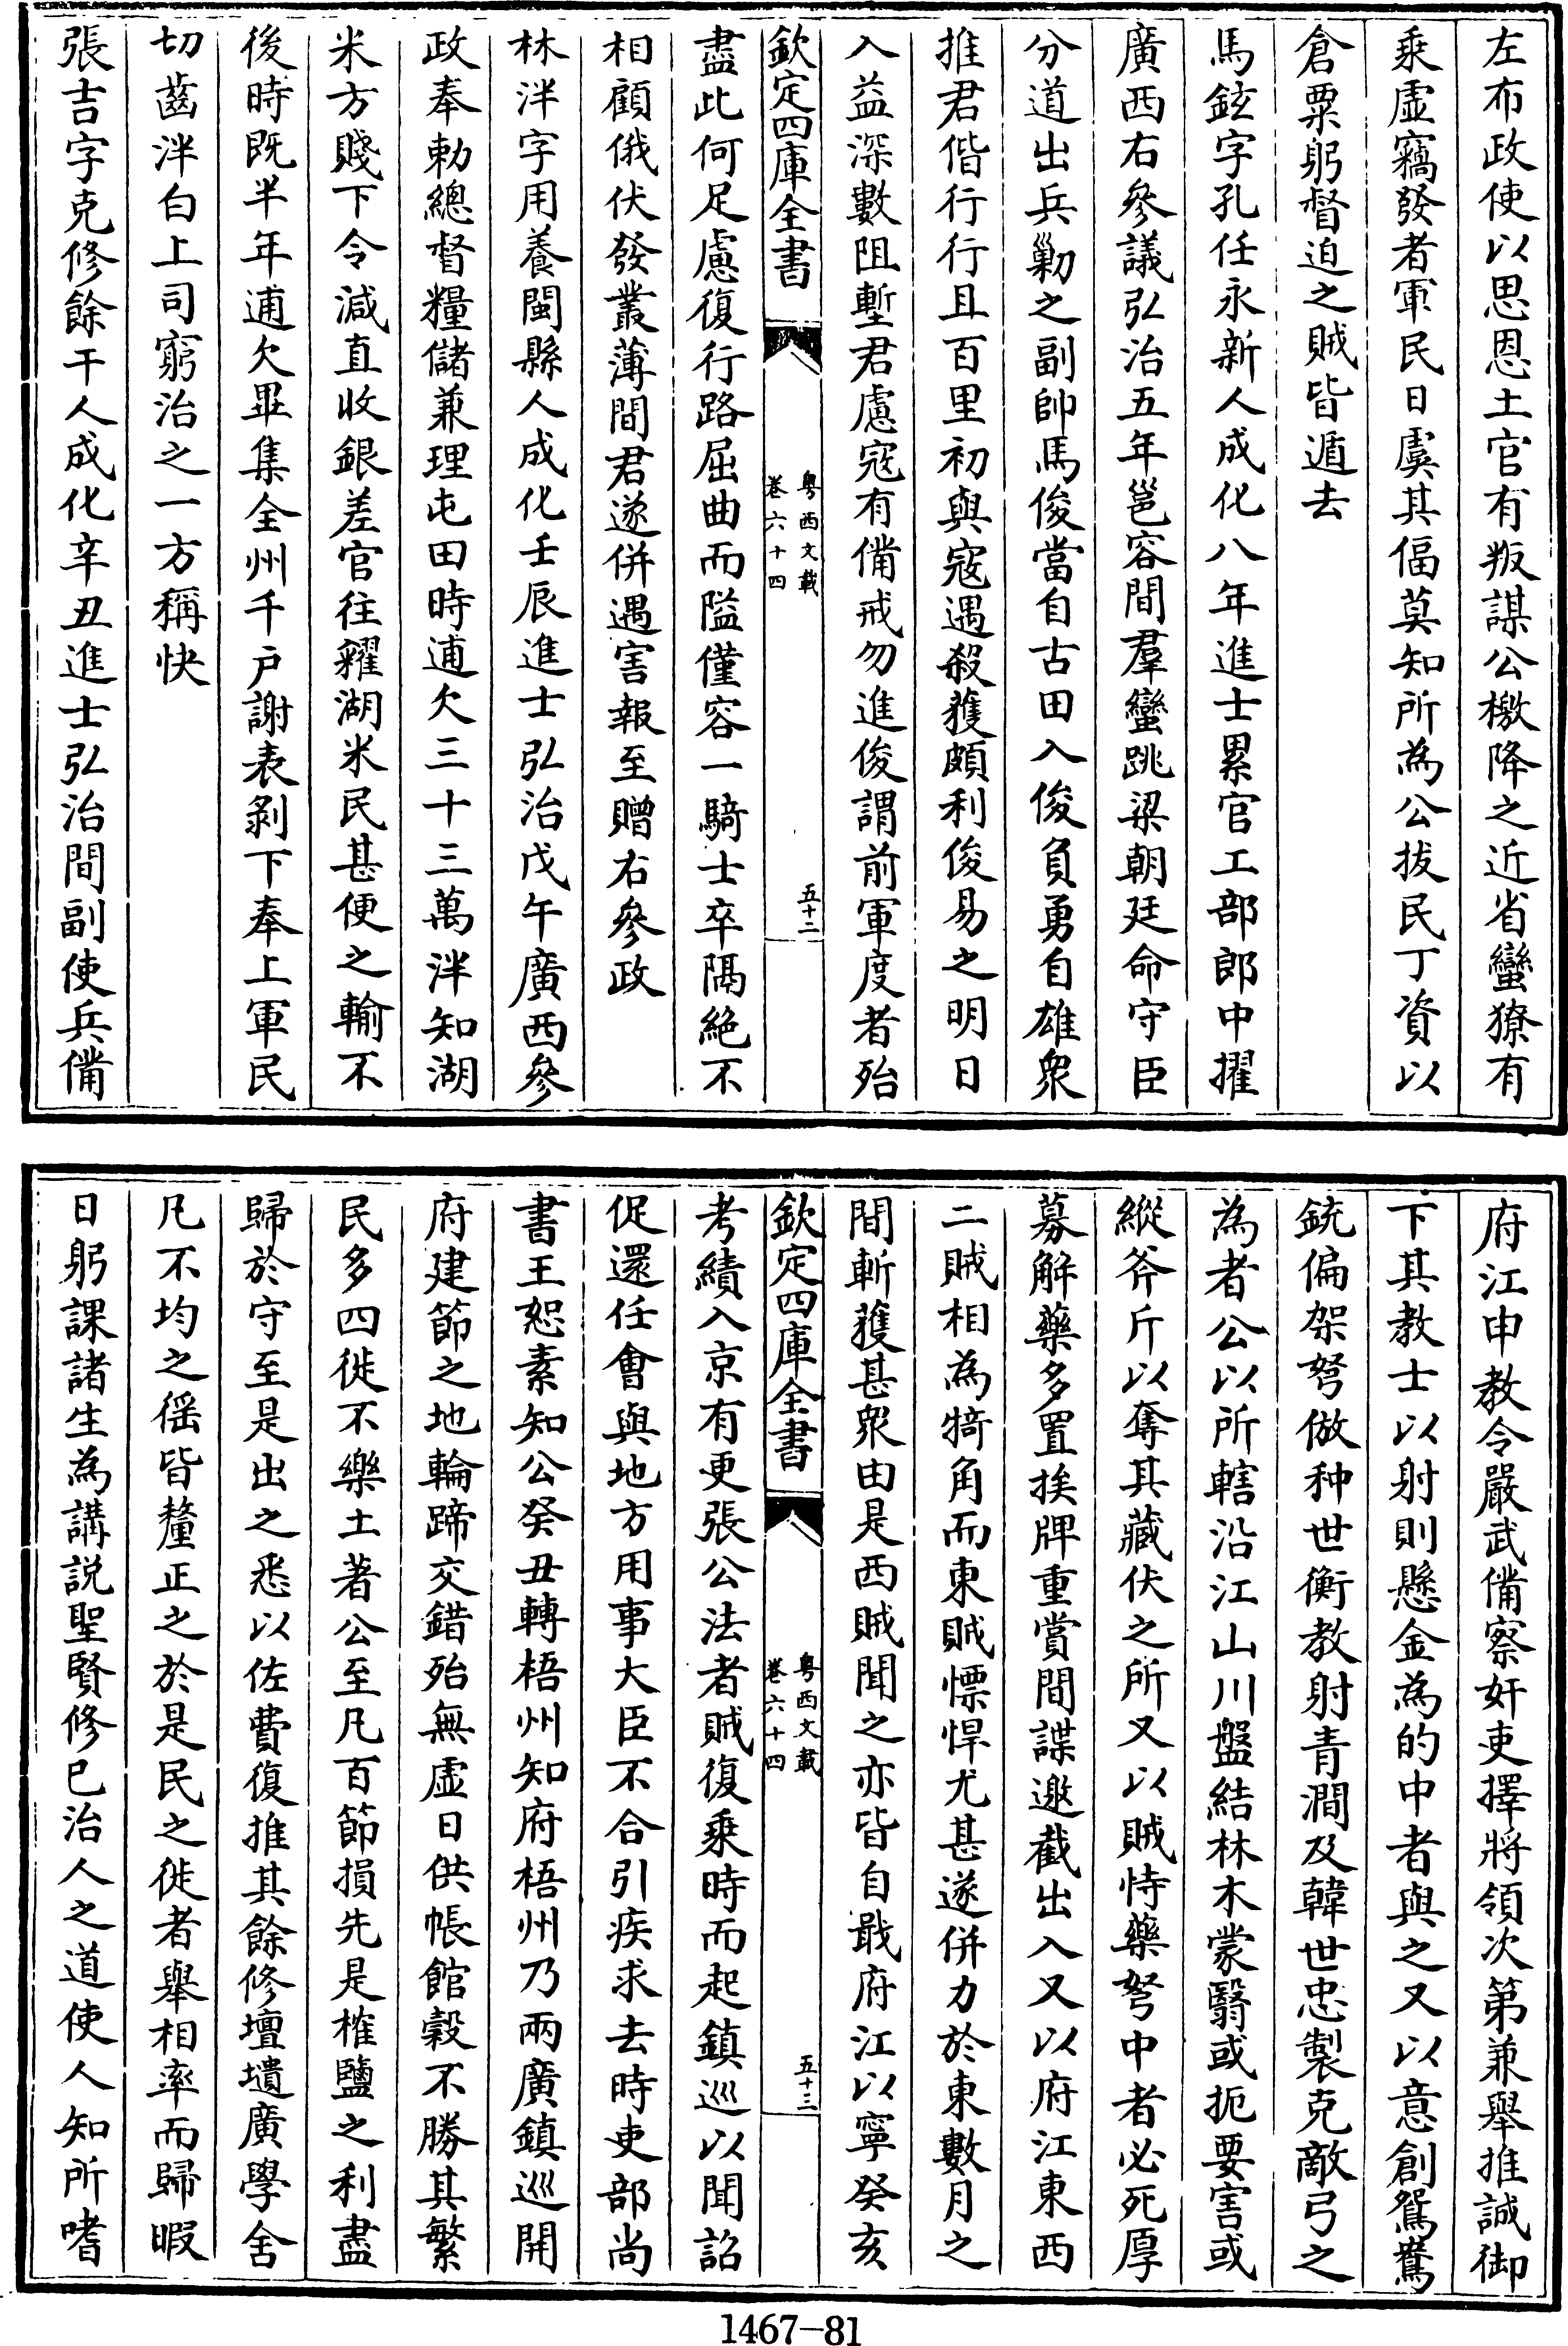 左布政使以思恩土官有叛謀公檄降之近省蠻獠有
乘虛竊發者軍民日虞其偪莫知所為公拔民丁資以
倉粟躬督迫之賊皆遁去
馬鉉字孔任永新人成化八年進士累官工部郎中擢
廣西右參議弘治五年邕容間羣蠻跳梁朝廷命守臣
分道出兵勦之副帥馬俊當自古田入俊負勇自雄衆
推君偕行行且百里初與寇遇殺獲頗利俊易之明日
入益深數阻塹君慮寇有備戒勿進俊謂前軍度者殆
欽定四庫全書
粵西文載
卷六十四
五十二
盡此何足慮復行路屈曲而隘僅容一騎士卒隔絶不
相顧俄伏發叢薄間君遂併遇害報至贈右參政
林泮字用養閩縣人成化壬辰進士弘治戊午廣西參
政奉勅總督糧儲兼理屯田時逋欠三十三萬泮知湖
米方賤下令減直收銀差官往糴湖米民甚便之輸不
後時既半年逋欠畢集全州千户謝表剝下奉上軍民
切齒泮白上司窮治之一方稱快
張吉字克修餘干人成化辛丑進士弘治間副使兵備
府江申教令嚴武備察奸吏擇將領次第兼舉推誠御
下其教士以射則懸金為的中者與之又以意創鴛鴦
銃偏架弩倣种世衡教射青澗及韓世忠製克敵弓之
為者公以所轄沿江山川盤結林木蒙翳或扼要害或
縱斧斤以奪其藏伏之所又以賊恃藥弩中者必死厚
募解藥多置挨牌重賞間諜邀截出入又以府江東西
二賊相為犄角而東賊慓悍尤甚遂併力於東數月之
間斬獲甚衆由是西賊聞之亦皆自戢府江以寧癸亥
欽定四庫全書
粵西文載
卷六十四
五十三
考績入京有更張公法者賊復乘時而起鎮巡以聞詔
促還任會與地方用事大臣不合引疾求去時吏部尚
書王恕素知公癸丑轉梧州知府梧州乃兩廣鎮巡開
府建節之地輪蹄交錯殆無虛日供帳館穀不勝其繁
民多四徙不樂土著公至凡百節損先是榷鹽之利盡
歸於守至是出之悉以佐費復推其餘修壇壝廣學舍
凡不均之徭皆釐正之於是民之徙者舉相率而歸暇
日躬課諸生為講説聖賢修已治人之道使人知所嗜
1467-81